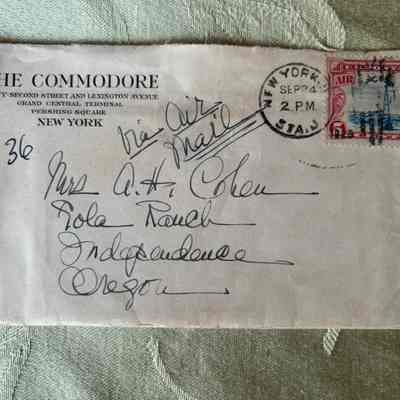 HE COMMODORE
Y-SECOND STREET AND LEXINGTON AVENUE
GRAND CENTRAL TERMINAL
PERSHING SQUARE
NEW YORK
NEW YORK
SEP 24
2 P.M.
STA.J
AIR
5
36
Via Air
Mail
Mrs A. H. Cohen
Rola Ranch
Independence
Oregon